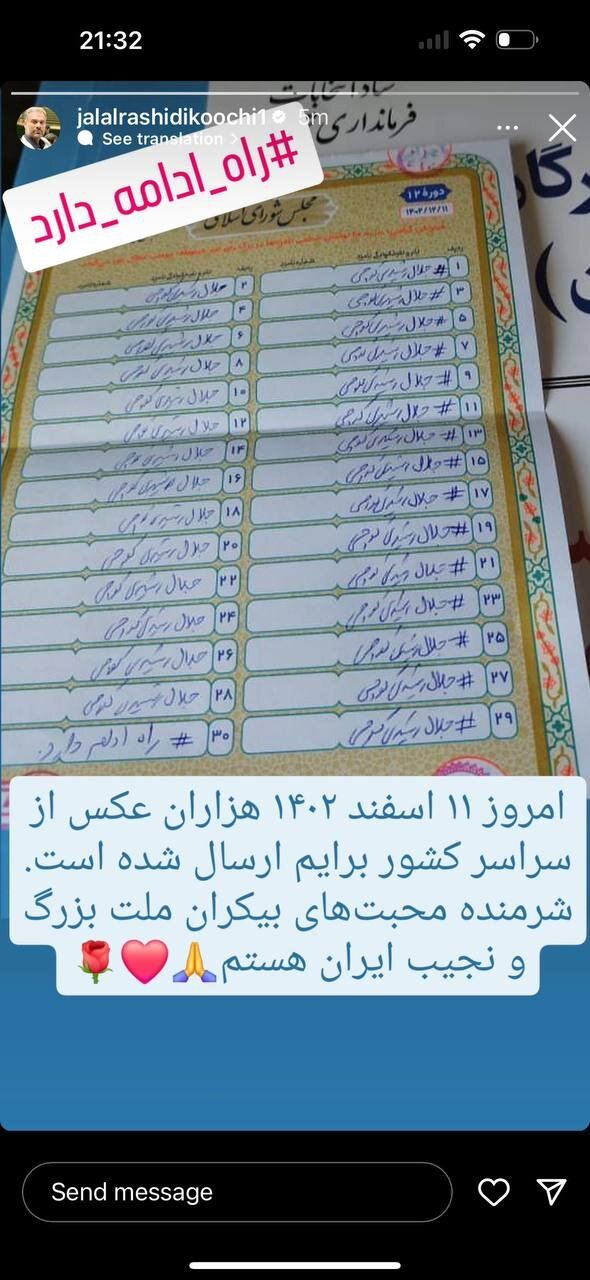 21:32
jalalrashidikoochi1 5m
See translation >
ستاد انتخابات
فرمانداری
#راه_ادامه_دارد
مجلس شورای اسلامی
دورهٔ ۱۲
۱۴۰۲/۱۲/۱۱
۱ #جلال رشیدی کوچی
۲ جلال رشیدی کوچی
۳ #جلال رشیدی کوچی
۴ جلال رشیدی کوچی
۵ #جلال رشیدی کوچی
۶ جلال رشیدی کوچی
۷ #جلال رشیدی کوچی
۸ جلال رشیدی کوچی
۹ #جلال رشیدی کوچی
۱۰ جلال رشیدی کوچی
۱۱ #جلال رشیدی کوچی
۱۲ جلال رشیدی کوچی
۱۳ #جلال رشیدی کوچی
۱۴ جلال رشیدی کوچی
۱۵ #جلال رشیدی کوچی
۱۶ جلال رشیدی کوچی
۱۷ #جلال رشیدی کوچی
۱۸ جلال رشیدی کوچی
۱۹ #جلال رشیدی کوچی
۲۰ جلال رشیدی کوچی
۲۱ #جلال رشیدی کوچی
۲۲ جلال رشیدی کوچی
۲۳ #جلال رشیدی کوچی
۲۴ جلال رشیدی کوچی
۲۵ #جلال رشیدی کوچی
۲۶ جلال رشیدی کوچی
۲۷ #جلال رشیدی کوچی
۲۸ جلال رشیدی کوچی
۲۹ #جلال رشیدی کوچی
۳۰ # راه ادامه دارد
امروز ۱۱ اسفند ۱۴۰۲ هزاران عکس از
سراسر کشور برایم ارسال شده است.
شرمنده محبت‌های بیکران ملت بزرگ
و نجیب ایران هستم🙏❤️🌹
Send message